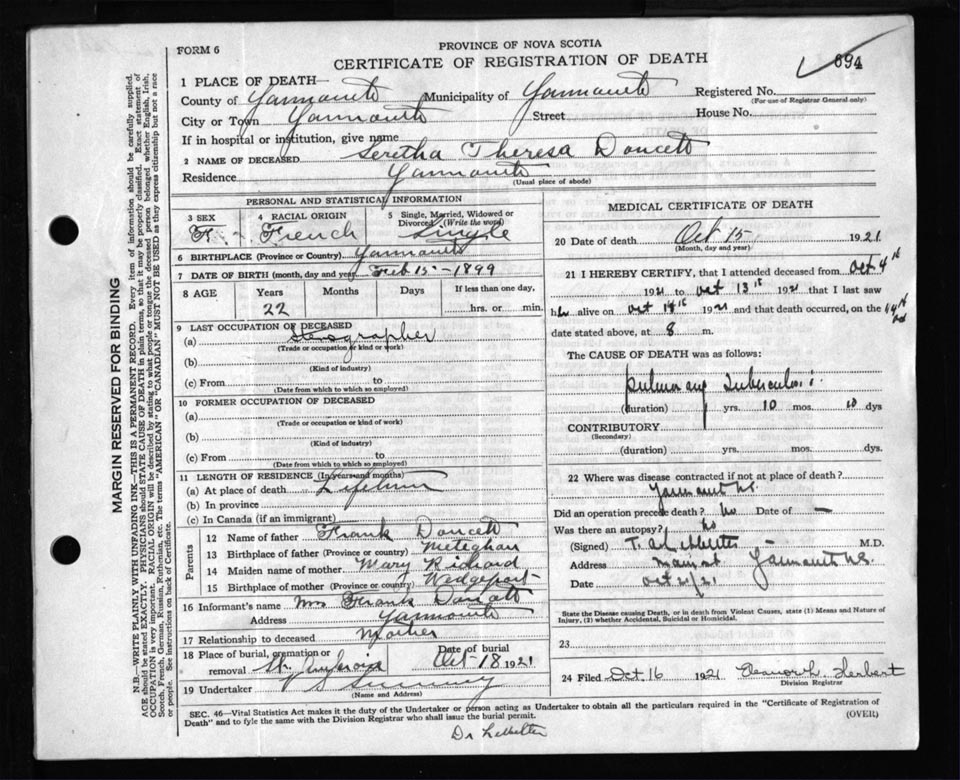 FORM 6
PROVINCE OF NOVA SCOTIA
CERTIFICATE OF REGISTRATION OF DEATH
694
1 PLACE OF DEATH—
County of Yarmouth Municipality of Yarmouth Registered No.
(For use of Registrar General only)
City or Town Yarmouth Street House No.
If in hospital or institution, give name
2 NAME OF DECEASED Seretha Theresa Doucett
Residence Yarmouth
(Usual place of abode)
PERSONAL AND STATISTICAL INFORMATION
3 SEX F. 4 RACIAL ORIGIN French 5 Single, Married, Widowed or Divorced (Write the word) Single
6 BIRTHPLACE (Province or Country) Yarmouth
7 DATE OF BIRTH (month, day and year) Feb 15 - 1899
8 AGE Years Months Days If less than one day,
22 hrs. or min.
9 LAST OCCUPATION OF DECEASED
(a) Stenographer
(Trade or occupation or kind of work)
(b)
(Kind of industry)
(c) From to
(Date from which to which so employed)
10 FORMER OCCUPATION OF DECEASED
(a)
(Trade or occupation or kind of work)
(b)
(Kind of industry)
(c) From to
(Date from which to which so employed)
11 LENGTH OF RESIDENCE (In years and months)
(a) At place of death Lifetime
(b) In province
(c) In Canada (if an immigrant)
Parents
12 Name of father Frank Doucett
13 Birthplace of father (Province or country) Meteghan
14 Maiden name of mother Mary Richard
15 Birthplace of mother (Province or country) Wedgeport
16 Informant's name Mrs Frank Doucett
Address Yarmouth
17 Relationship to deceased Mother
18 Place of burial, cremation or removal St. Ambrois Date of burial Oct 18 1921
19 Undertaker Sweeny
(Name and Address)
MEDICAL CERTIFICATE OF DEATH
20 Date of death Oct 15 1921
(Month, day and year)
21 I HEREBY CERTIFY, that I attended deceased from Oct 4th
1921 to Oct 13th 1921 that I last saw
her alive on Oct 14th 1921 and that death occurred, on the
date stated above, at 8 m.
The CAUSE OF DEATH was as follows:
Pulmonary Tuberculosis
(duration) yrs. 10 mos. 10 dys
CONTRIBUTORY
(Secondary)
(duration) yrs. mos. dys
22 Where was disease contracted if not at place of death?
Yarmouth NS.
Did an operation precede death? No Date of —
Was there an autopsy? No
(Signed) M.D.
Address Main st Yarmouth N.S.
Date Oct 21/21
State the Disease causing Death, or in death from Violent Causes, state (1) Means and Nature of
Injury, (2) whether Accidental, Suicidal or Homicidal.
23
24 Filed Oct 16 1921 Eleanor L. Herbert
Division Registrar
SEC. 46—Vital Statistics Act makes it the duty of the Undertaker or person acting as Undertaker to obtain all the particulars required in the "Certificate of Registration of
Death" and to fyle the same with the Division Registrar who shall issue the burial permit.
(OVER)
MARGIN RESERVED FOR BINDING
N.B.—WRITE PLAINLY WITH UNFADING INK—THIS IS A PERMANENT RECORD. Every item of information should be carefully supplied.
AGE should be stated EXACTLY. PHYSICIANS should STATE CAUSE OF DEATH in plain terms, so that it may be properly classified. Exact statement of
OCCUPATION is very important. RACIAL ORIGIN will be described by stating to what people or tongue the deceased person belonged whether English, Irish,
Scotch, French, German, Russian, Ruthenian, etc. The terms "AMERICAN" OR "CANADIAN" MUST NOT BE USED as they express citizenship but not a race
or people. See instructions on back of Certificate.